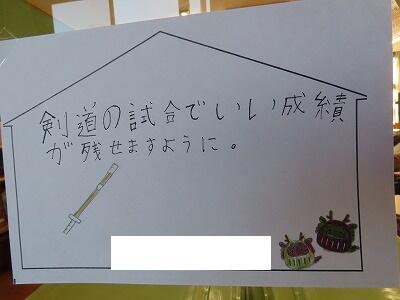 剣道の試合でいい成績
が残せますように。